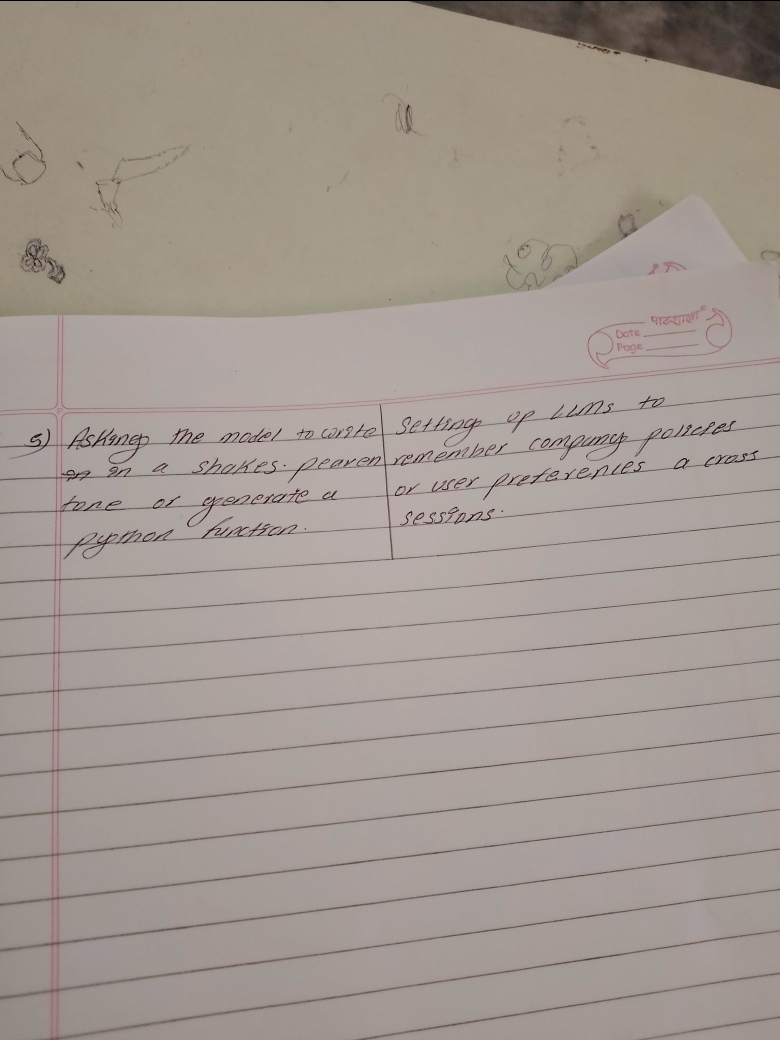 पाठशाला
Date
Page
5) Asking the model to write
in a shakes-pearen
tone or generate a
python function.
Setting up LLMs to
remember company policies
or user preferenies a cross
sessions.